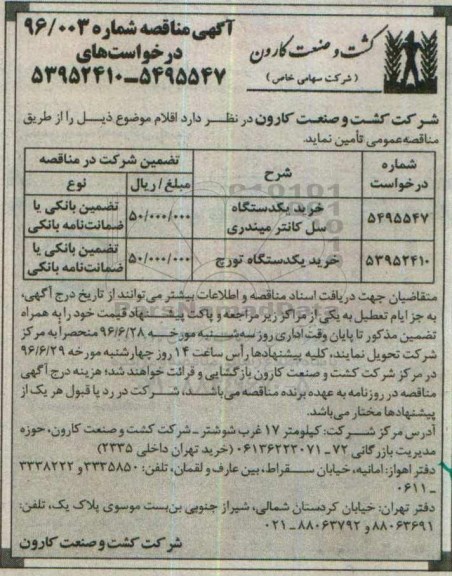 آگهی مناقصه شماره ۹۶/۰۰۳
درخواست‌های
۵۴۹۵۵۴۷ـ۵۳۹۵۲۴۱۰
کشت و صنعت کارون
(شرکت سهامی خاص)
شرکت کشت و صنعت کارون در نظر دارد اقلام موضوع ذیل را از طریق
مناقصه‌عمومی تأمین نماید.
شماره درخواست
شرح
تضمین شرکت در مناقصه
مبلغ/ ریال
نوع
۵۴۹۵۵۴۷
خرید یکدستگاه
سل کانتر میندری
۵۰/۰۰۰/۰۰۰
تضمین بانکی یا
ضمانت‌نامه بانکی
۵۳۹۵۲۴۱۰
خرید یکدستگاه تورچ
۵۰/۰۰۰/۰۰۰
تضمین بانکی یا
ضمانت‌نامه بانکی
متقاضیان جهت دریافت اسناد مناقصه و اطلاعات بیشتر می‌توانند از تاریخ درج آگهی،
به جز ایام تعطیل به یکی از مراکز زیر مراجعه و پاکت پیشنهاد قیمت خود را به همراه
تضمین مذکور تا پایان وقت اداری روز سه‌شنبه مورخه ۹۶/۶/۲۸ منحصراً به مرکز
شرکت تحویل نمایند، کلیه پیشنهادها رأس ساعت ۱۴ روز چهارشنبه مورخه ۹۶/۶/۲۹
در مرکز شرکت کشت و صنعت کارون بازگشایی و قرائت خواهند شد؛ هزینه درج آگهی
مناقصه در روزنامه به عهده برنده مناقصه می‌باشد، شرکت در رد یا قبول هر یک از
پیشنهادها مختار می‌باشد.
آدرس مرکز شرکت: کیلومتر ۱۷ غرب شوشتر ـ شرکت کشت و صنعت کارون، حوزه
مدیریت بازرگانی ۷۲ـ ۰۶۱۳۶۲۲۳۰۷۱ (خرید تهران داخلی ۲۳۳۵)
دفتر اهواز: امانیه، خیابان سقراط، بین عارف و لقمان، تلفن: ۳۳۳۵۸۵۰ و ۳۳۳۸۲۲۲
ـ ۰۶۱۱
دفتر تهران: خیابان کردستان شمالی، شیراز جنوبی بن‌بست موسوی پلاک یک، تلفن:
۸۸۰۶۳۶۹۱ و ۸۸۰۶۳۷۹۲ ـ ۰۲۱
شرکت کشت و صنعت کارون